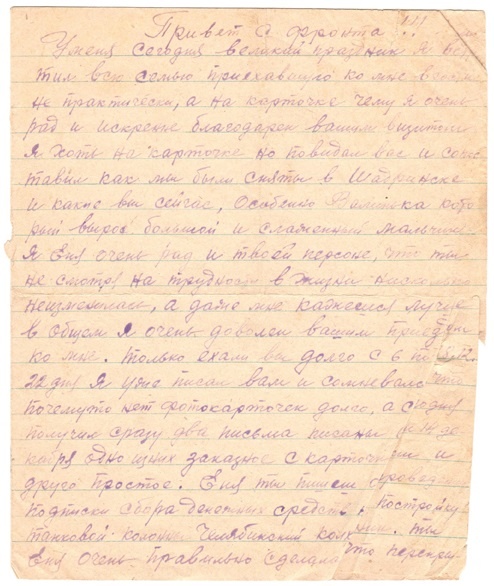 Привет с фронта!!!
Уменя сегодня великий праздник я вст
тил всю семью приехавшую ко мне
не практически, а на карточке чему я очень
рад и искренне благодарен вашим визитом
Я хоть на карточке но повидал вас и сопос
тавил как мы были сняты в Шадринске
и какие вы сейчас, Особенно Валинька кото
рый вырос большой и славненький мальчик.
Я Еня очень рад и твоей персоне, что ты
не смотря на трудности в жизни нисколько
неизменилась, а даже мне кажется лучше
в общем я очень доволен вашим приездом
ко мне. Только ехали вы долго с 6 по
22 дня Я уже писал вам и сомневался что
почемуто нет фотокарточек долго, а сегодня
получил сразу два письма писаны де
кабря одно изних заказное с карточками и
друго простое. Еня ты пишеш проведен
подписки сбора денежных средств постройку
танковой колонны Челябинский колхозник. Ты
Еня очень правильно сделала что